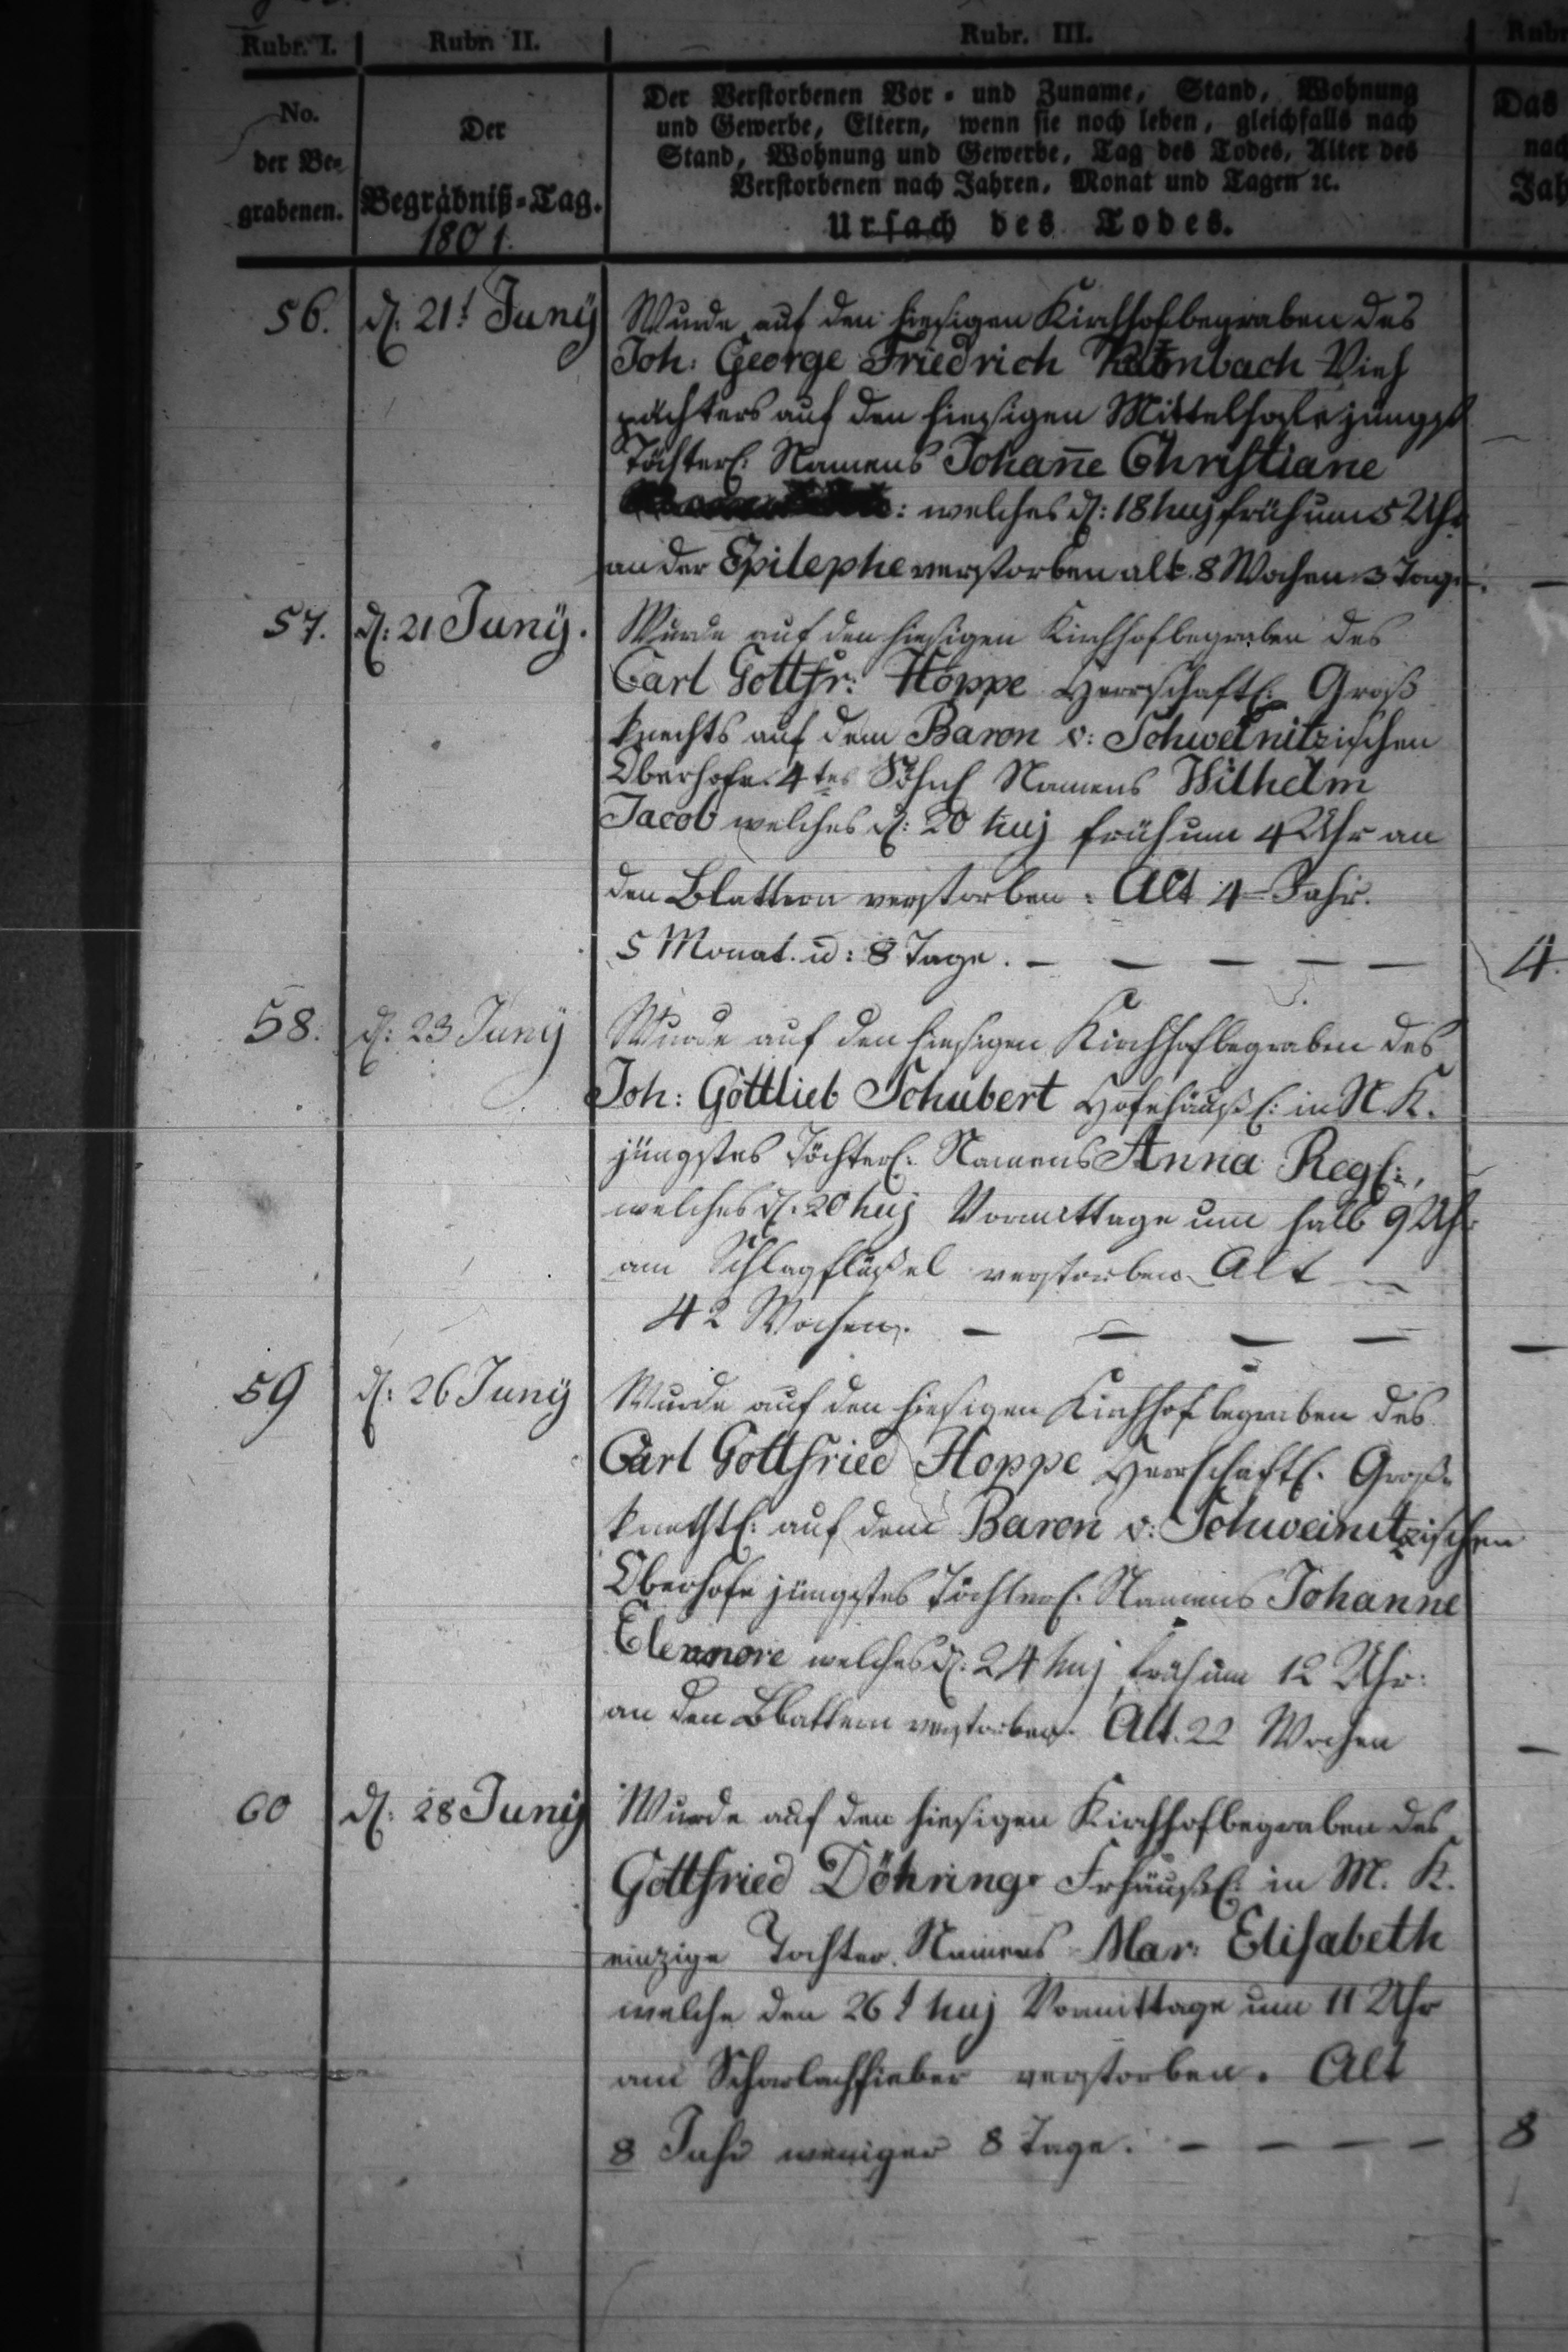 Rubr. I. Rubr. II. Rubr. III.
No.
der Be-
grabenen.
Der
Begräbniß-Tag.
1801.
Der Verstorbenen Vor- und Zuname, Stand, Wohnung
und Gewerbe, Eltern, wenn sie noch leben, gleichfalls nach
Stand, Wohnung und Gewerbe, Tag des Todes, Alter des
Verstorbenen nach Jahren, Monat und Tagen ꝛc.
Ursach des Todes.
Das
nach
Jah
56. d: 21t Juny Wurde auf den hiesigen Kirchhof begraben des
Joh: George Friedrich Vieh
pächters auf den hiesigen Mittelhofe jüngst
Töchterl: Namens Johañe Christiane
: welches d: 18 huj früh um 5 Uhr
an der Epilepsie verstorben alt 8 Wochen 3 Tage. —
57. d: 21 Juny. Wurde auf den hiesigen Kirchhof begraben des
Carl Gottfr: Hoppe Herrschaftl: Groß
knechts auf dem Baron v: Schweinitzischen
Oberhofe 4tes Söhnl Namens Wilhelm
Jacob welches d: 20 huj früh um 4 Uhr an
den Blattern verstorben. Alt 4 Jahr.
5 Monat. u: 8 Tage. — — — — — 4.
58. d: 23 Juny Wurde auf den hiesigen Kirchhof begraben des
Joh: Gottlieb Schubert Hofehäußl: in N. K.
jüngstes Töchterl: Namens Anna Regl:,
welches d. 20 huj Vormittage um halb 9 Uhr
am Schlagflüßel verstorben. Alt
42 Wochen. — — — — —
59 d: 26 Juny Wurde auf den hiesigen Kirchhof begraben des
Carl Gottfried Hoppe Herrschaftl. Groß-
knechtl: auf dem Baron v: Schweinitzischen
Oberhofe jüngstes Töchterl: Namens Johanne
Eleonore welches d: 24 huj früh um 12 Uhr:
an den Blattern verstorben. Alt. 22 Wochen —
60 d: 28 Juny Wurde auf den hiesigen Kirchhof begraben des
Gottfried Döhring Frhäußl: in M. K.
einzige Tochter. Namens Mar: Elisabeth
welche den 26t huj Vormittage um 11 Uhr
am Scharlachfieber verstorben. Alt
8 Jahr weniger 8 Tage. — — — — 8